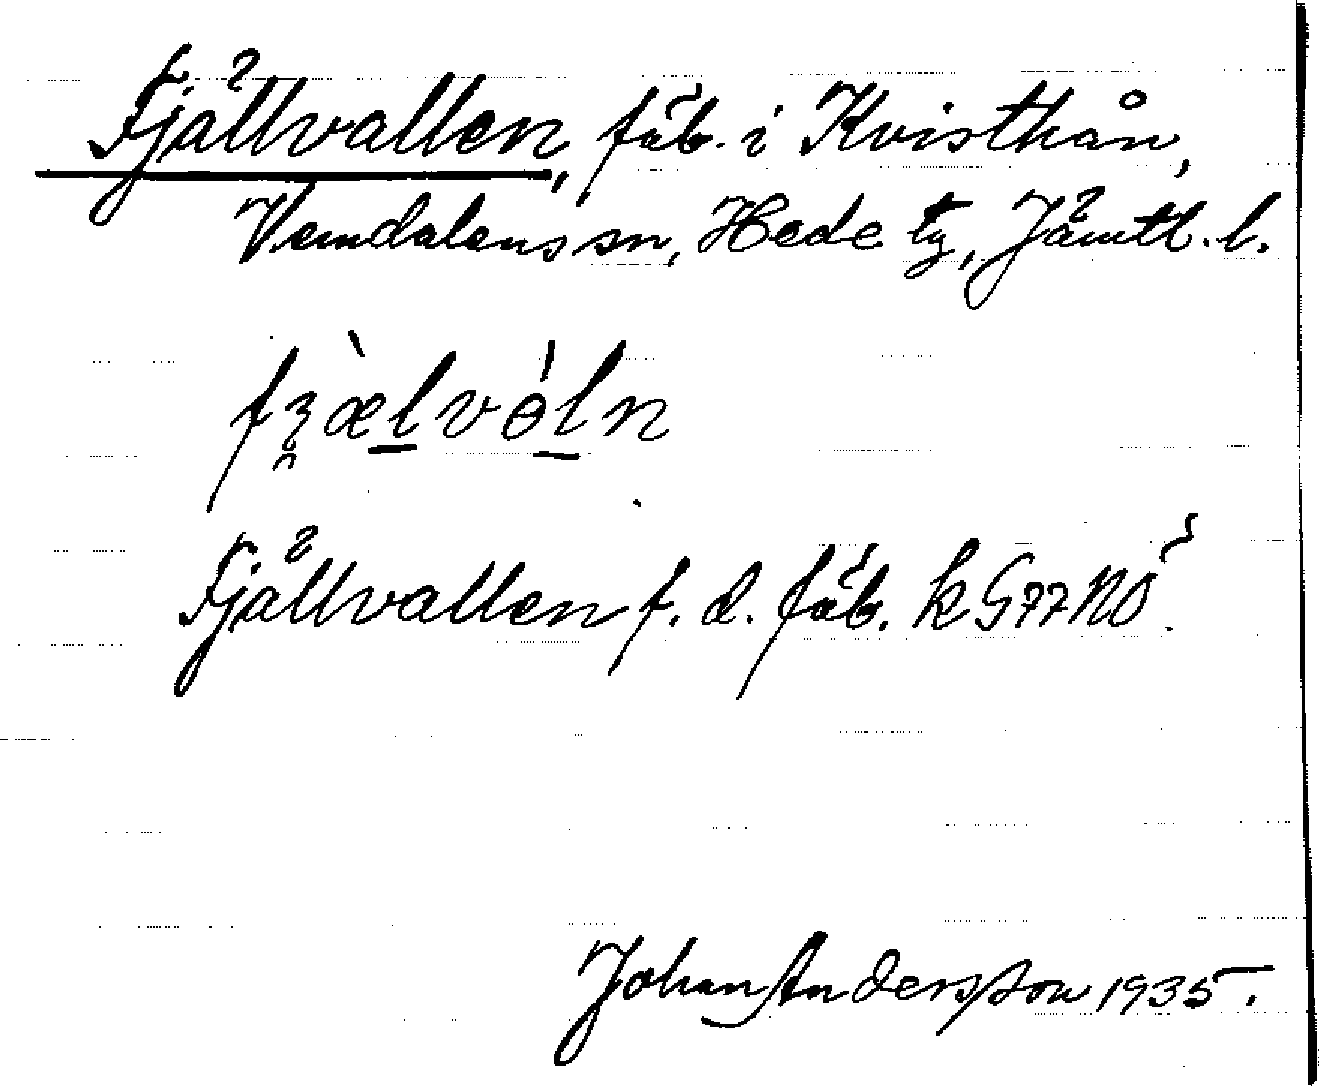 Fjällvallen, fäb. i Kvisthån,
Vemdalens sn, Hede tg, Jämtl. l.
fʒ̯æ̀l̠vɵ́l̠n
Fjällvallen f. d. fäb. k G77NÖ
Johan Andersson 1935.